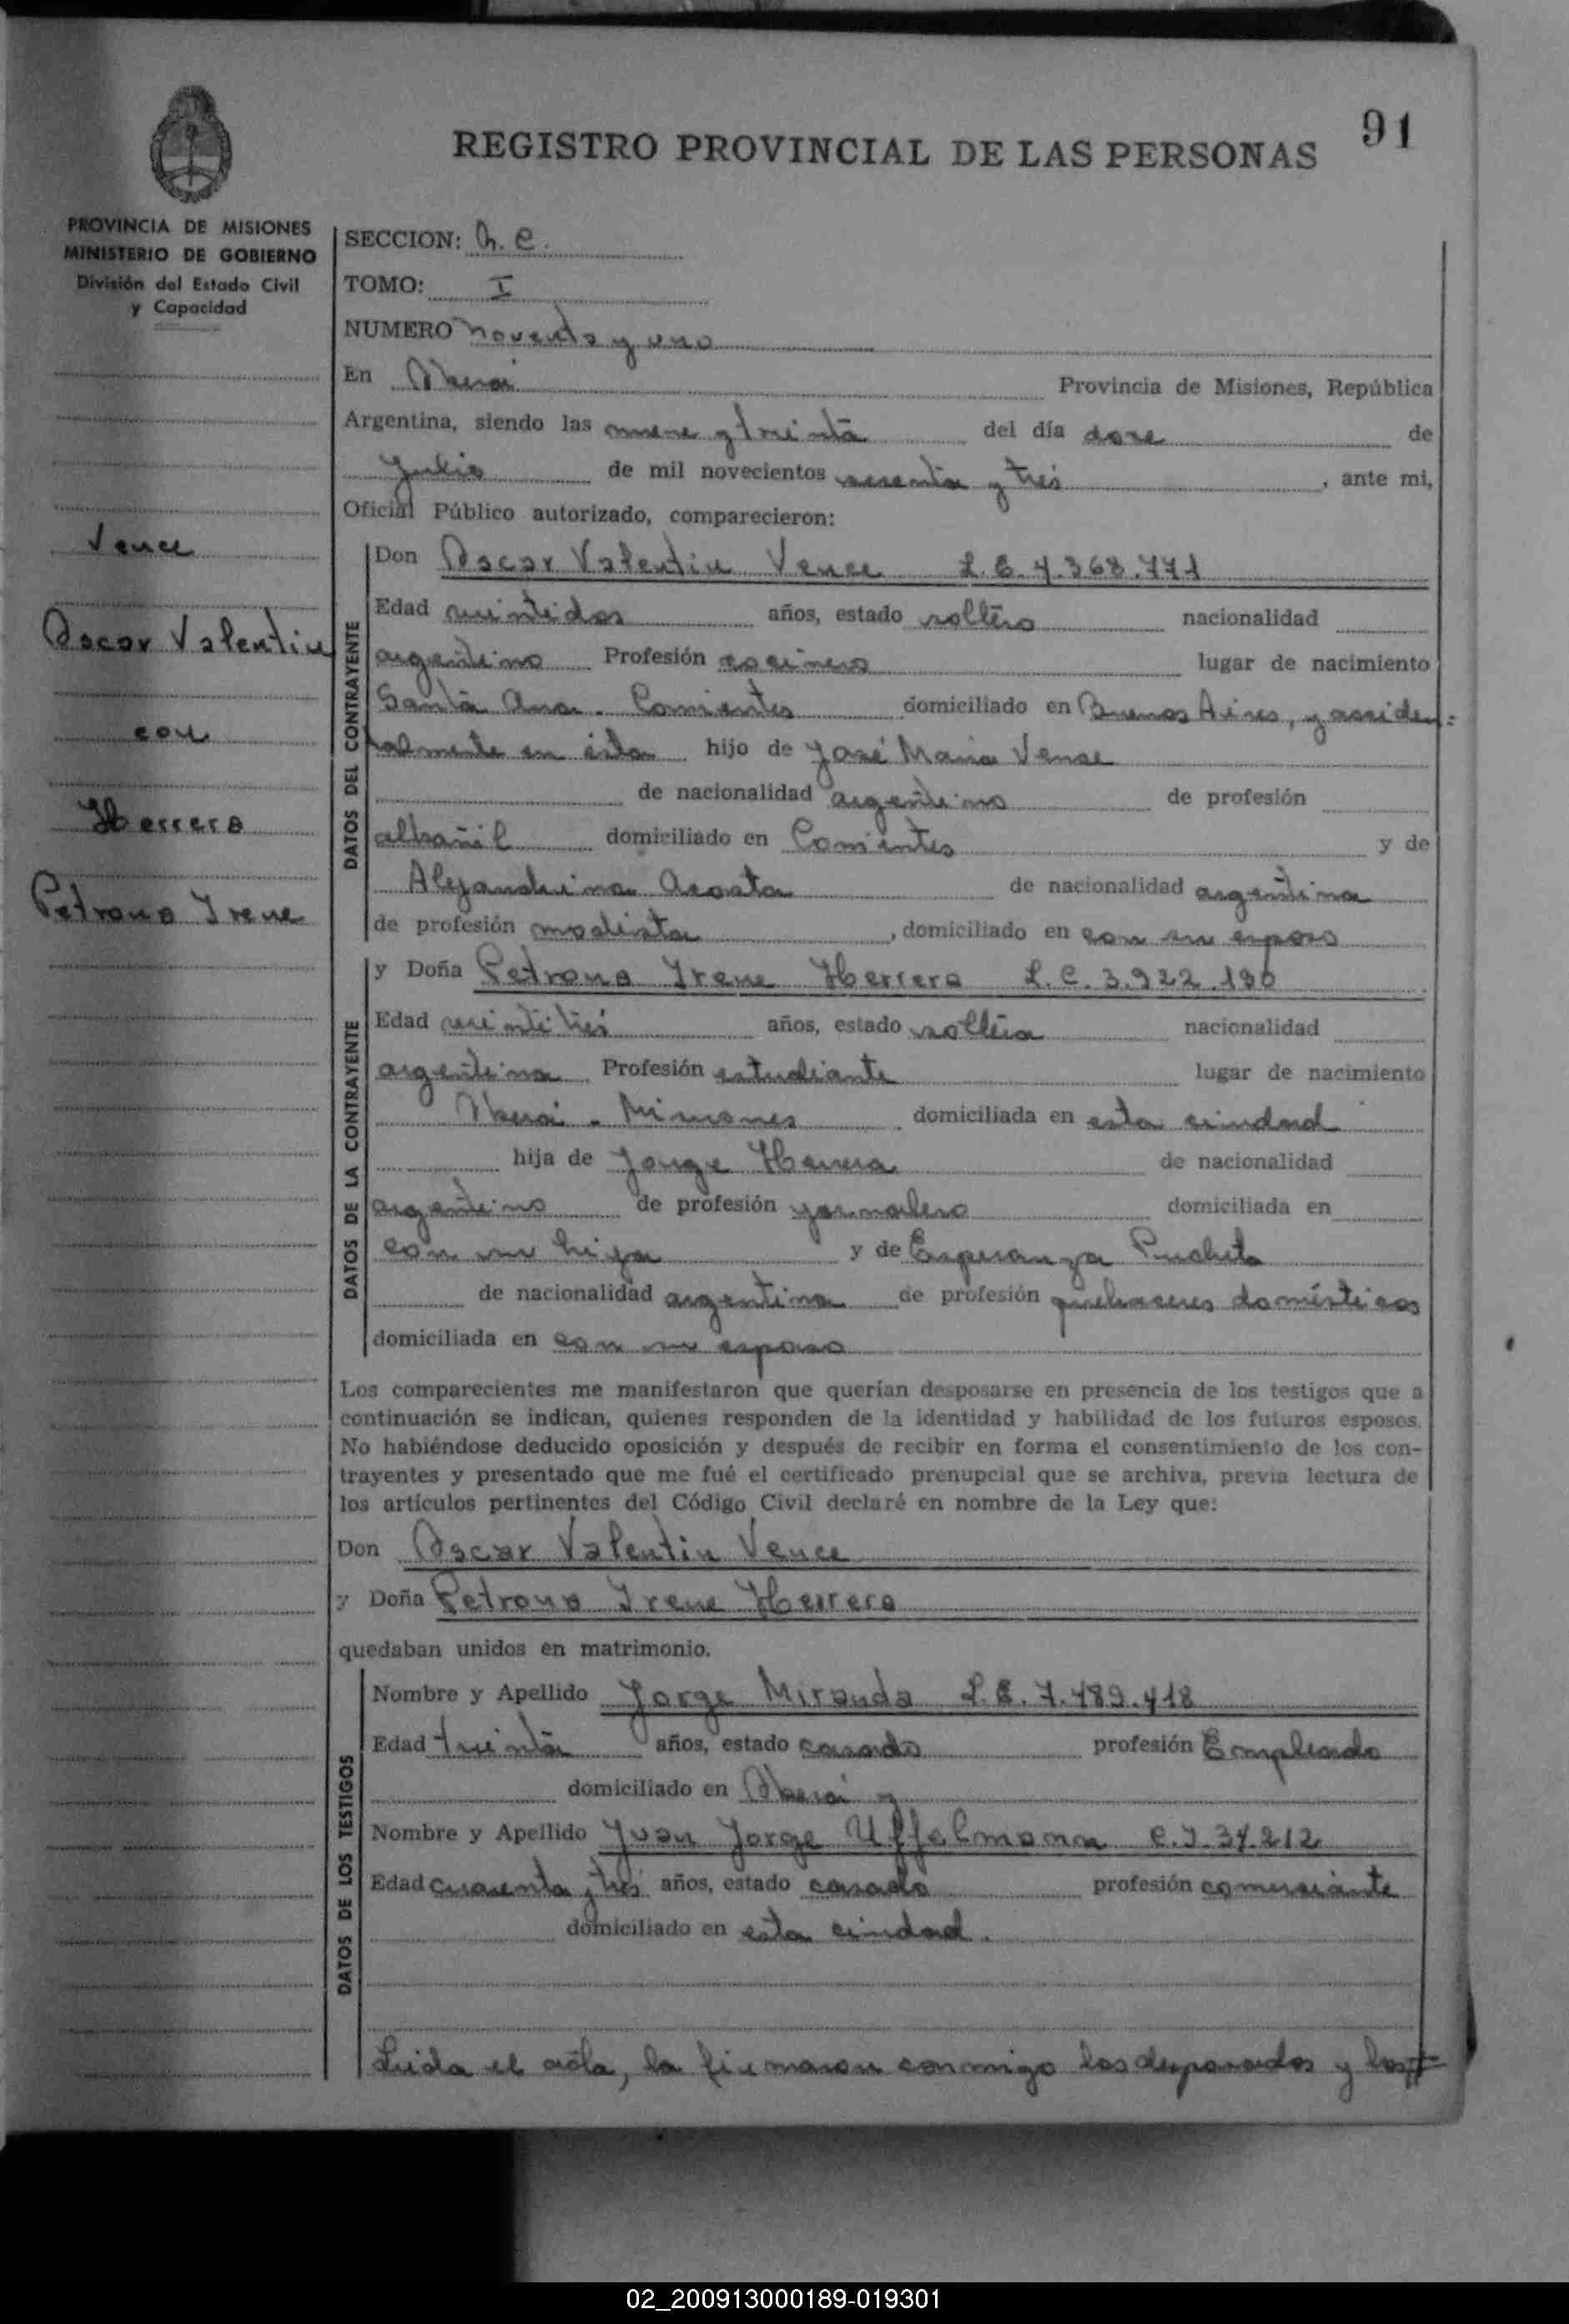 91
REGISTRO PROVINCIAL DE LAS PERSONAS
PROVINCIA DE MISIONES
MINISTERIO DE GOBIERNO
División del Estado Civil
y Capacidad
Vence
Oscar Valentin
con
Herrera
Petrona Irene
SECCION:
TOMO: I
NUMERO noventa y uno
En Oberá Provincia de Misiones, República
Argentina, siendo las nueve y treinta del día doce de
Julio de mil novecientos sesenta y tres, ante mi,
Oficial Público autorizado, comparecieron:
DATOS DEL CONTRAYENTE
Don Oscar Valentin Vence L.E.
Edad veintidos años, estado soltero nacionalidad
argentino Profesión cocinero lugar de nacimiento
Santa Ana - Corrientes domiciliado en Buenos Aires, y acciden=
talmente en ésta hijo de José Maria Vence
de nacionalidad argentino de profesión
albañil domiciliado en Corrientes y de
Alejandrina Acosta de nacionalidad argentina
de profesión modista, domiciliado en con su esposo
DATOS DE LA CONTRAYENTE
y Doña Petrona Irene Herrera L.C. 3.922.190
Edad veintitrés años, estado soltera nacionalidad
argentina Profesión estudiante lugar de nacimiento
Oberá - Misiones domiciliada en esta ciudad
hija de Jorge Herrera de nacionalidad
argentino de profesión jornalero domiciliada en
con su hija y de Esperanza
de nacionalidad argentina de profesión quehaceres domésticos
domiciliada en con su esposo
Los comparecientes me manifestaron que querían desposarse en presencia de los testigos que a
continuación se indican, quienes responden de la identidad y habilidad de los futuros esposos.
No habiéndose deducido oposición y después de recibir en forma el consentimiento de los con-
trayentes y presentado que me fué el certificado prenupcial que se archiva, previa lectura de
los artículos pertinentes del Código Civil declaré en nombre de la Ley que:
Don Oscar Valentin Vence
y Doña Petrona Irene Herrera
quedaban unidos en matrimonio.
DATOS DE LOS TESTIGOS
Nombre y Apellido Jorge Miranda L.E. 7.489.418
Edad treinta años, estado casado profesión Empleado
domiciliado en Oberá y
Nombre y Apellido Juan Jorge Uffelmann C.I. 34.212
Edad cuarenta y tres años, estado casado profesión comerciante
domiciliado en esta ciudad.
Leida el acta, la firmaron conmigo los desposados y los
02_200913000189-019301